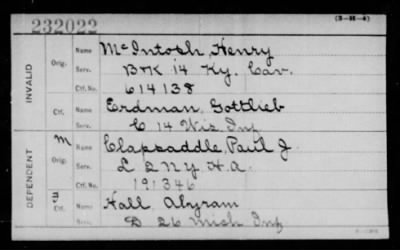 (3-H-4)
232022
INVALID
Orig.
Name McIntosh, Henry
Serv. B+K 14 Ky. Cav.
Ctf. No. 614138
Ctf.
Name Erdman, Gottlieb
Serv. C 14 Wis Inf
DEPENDENT
M
Orig.
Name Clapsaddle, Paul J.
Serv. L 2 N Y H. A.
Ctf. No. 191346
Ctf.
Name Hall Abyram
Serv. D 26 Mich Inf